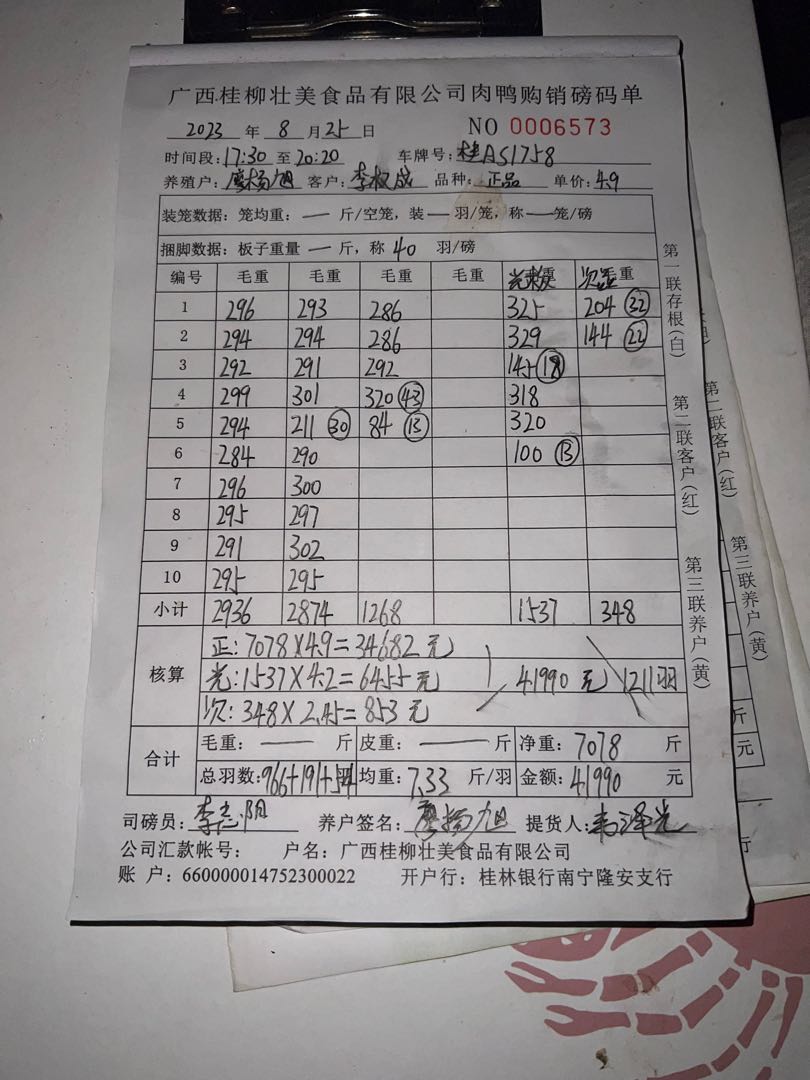 广西桂柳壮美食品有限公司肉鸭购销磅码单
2023 年 8 月 25 日 NO 0006573
时间段:17:30 至 20:20 车牌号:桂AS1758
养殖户:廖杨旭 客户:李权成 品种:正品 单价:4.9
装笼数据:笼均重:— 斤/空笼,装—羽/笼,称—笼/磅
捆脚数据:板子重量 — 斤,称 40 羽/磅
编号 毛重 毛重 毛重 毛重 重 毛重
1 296 293 286 325 204 (32)
2 294 294 286 329 144 (22)
3 292 291 292 145 (18)
4 299 301 320 (43) 318
5 294 211 (30) 84 (13) 320
6 284 290 100 (13)
7 296 300
8 295 297
9 291 302
10 295 295
小计 2936 2874 1268 1537 348
核算
正:7078×4.9=34682元
光:1537×4.2=6455元 41990元 1211羽
次:348×2.45=853元
合计
毛重:— 斤 皮重:— 斤 净重:7078 斤
总羽数:966+191+54 均重:7.33 斤/羽 金额:41990 元
司磅员:李志阳 养户签名:廖杨旭 提货人:韦泽光
公司汇款帐号: 户名:广西桂柳壮美食品有限公司
账 户:660000014752300022 开户行:桂林银行南宁隆安支行
第一联存根(白)
第二联客户(红)
第三联养户(黄)
第二联客户(红)
第三联养户(黄)
斤
元